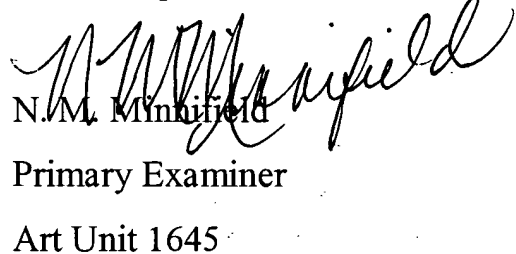 N. M. Minnifield
N. M. Minnifield
Primary Examiner
Art Unit 1645